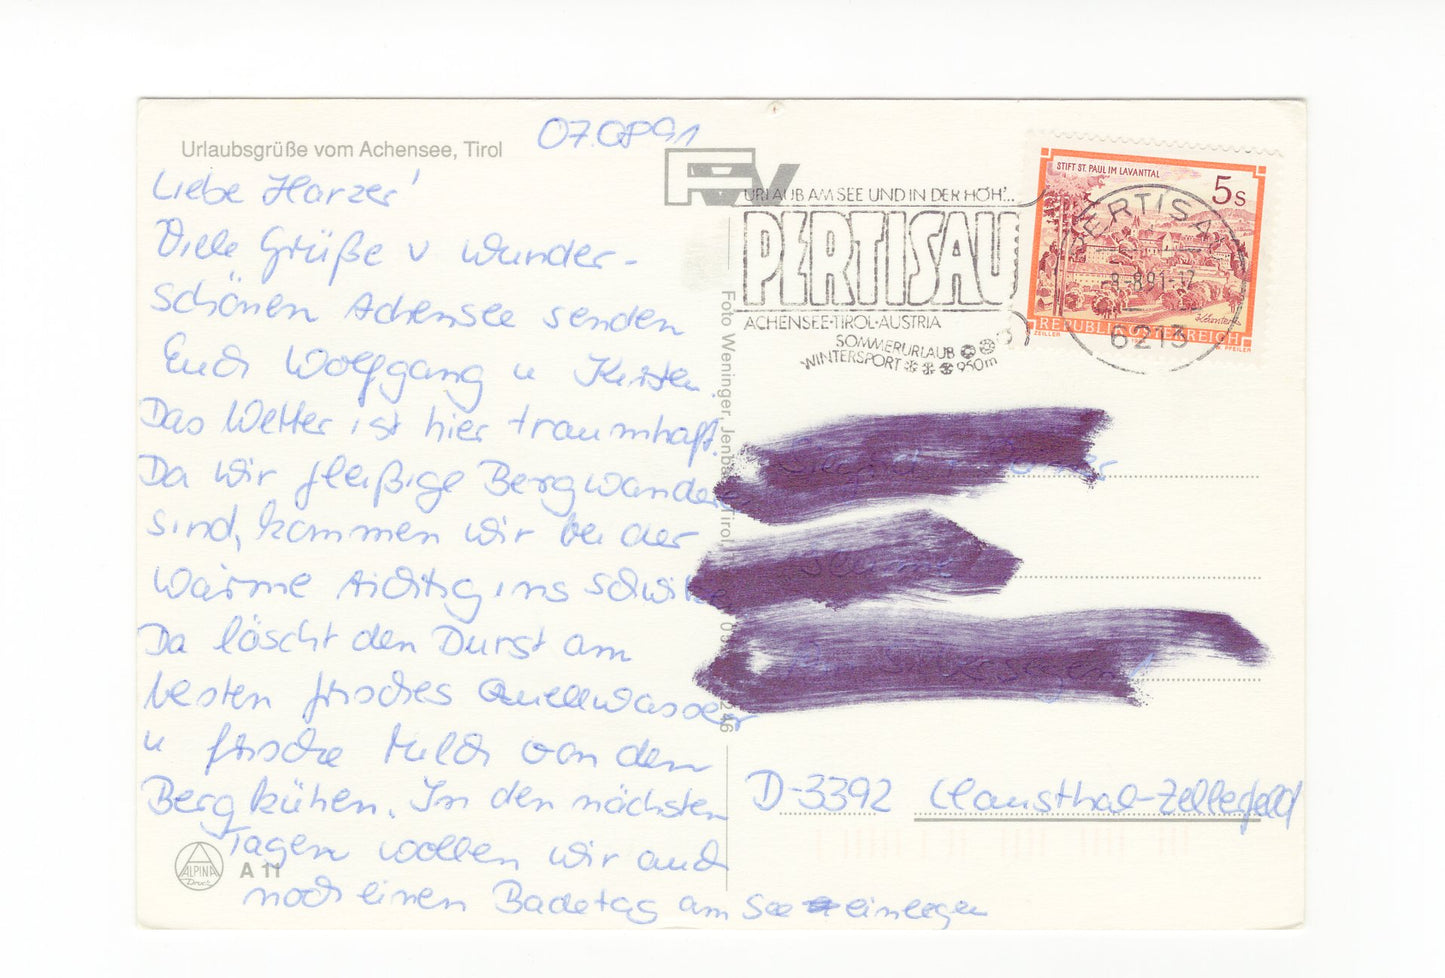 Urlaubsgrüße vom Achensee, Tirol
07.08 91
Liebe Harzer!
Viele Grüße v wunder-
schönen Achensee senden
Euch Wolfgang u
Das Wetter ist hier traumhaft.
Da wir fleißige Bergwander
sind, kommen wir bei der
Wärme richtig ins schwitze
Da löscht den Durst am
besten frisches Quellwasser
u frische Milch von den
Bergkühen. In den nächsten
Tagen wollen wir auch
noch einen Badetag am See einlegen
ALPINA
Druck
A 11
Foto Weninger Jenba Tirol, 246
URLAUB AM SEE UND IN DER HÖH'...
PERTISAU
ACHENSEE·TIROL·AUSTRIA
SOMMERURLAUB
WINTERSPORT 950m
STIFT ST. PAUL IM LAVANTTAL
5s
REPUBLIK ÖSTERREICH
ZEILER PFEILER
PERTISA
-8.8.91-17
6213
D-3392 Clausthal-Zellerfeld